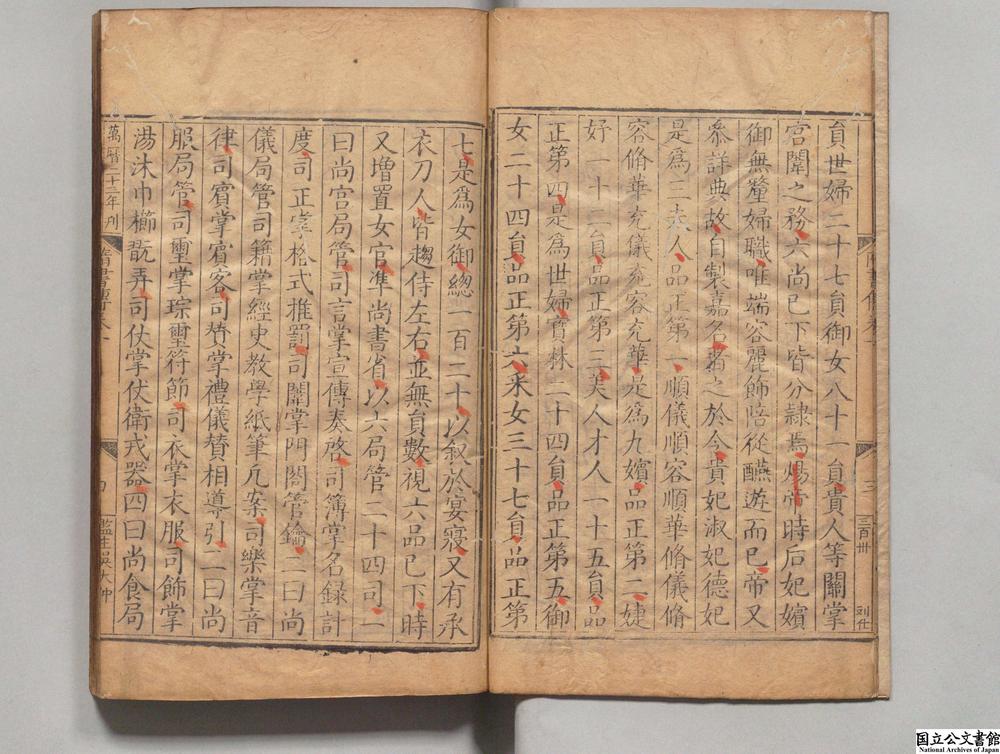 員世婦二十七員御女八十一員貴人等關掌
宮闈之務六尚已下皆分隷焉煬帝時后妃嬪
御無釐婦職唯端容麗飾陪從醼遊而已帝又
叅詳典故自製嘉名著之於令貴妃淑妃德妃
是爲三夫人品正第一順儀順容順華脩儀脩
容脩華充儀充容充華是爲九嬪品正第二婕
妤一十二員品正第三美人才人一十五員品
正第四是爲世婦寳林二十四員品正第五御
女二十四員品正第六采女三十七員品正第
七是爲女御總一百二十以叙於宴寢又有承
衣刀人皆趨侍左右並無員數視六品已下時
又增置女官準尚書省以六局管二十四司一
曰尚宮局管司言掌宣傳奏啓司簿掌名録計
度司正掌格式推罰司闈掌門閤管鑰二曰尚
儀局管司籍掌經史教學紙筆几案司樂掌音
律司賓掌賓客司贊掌禮儀贊相導引三曰尚
服局管司璽掌琮璽符節司衣掌衣服司飾掌
湯沐巾櫛翫弄司仗掌仗衛戎器四曰尚食局
萬曆二十三年刋
隋書傳卷一
四
三
三百卅
国立公文書館
National Archives of Japan